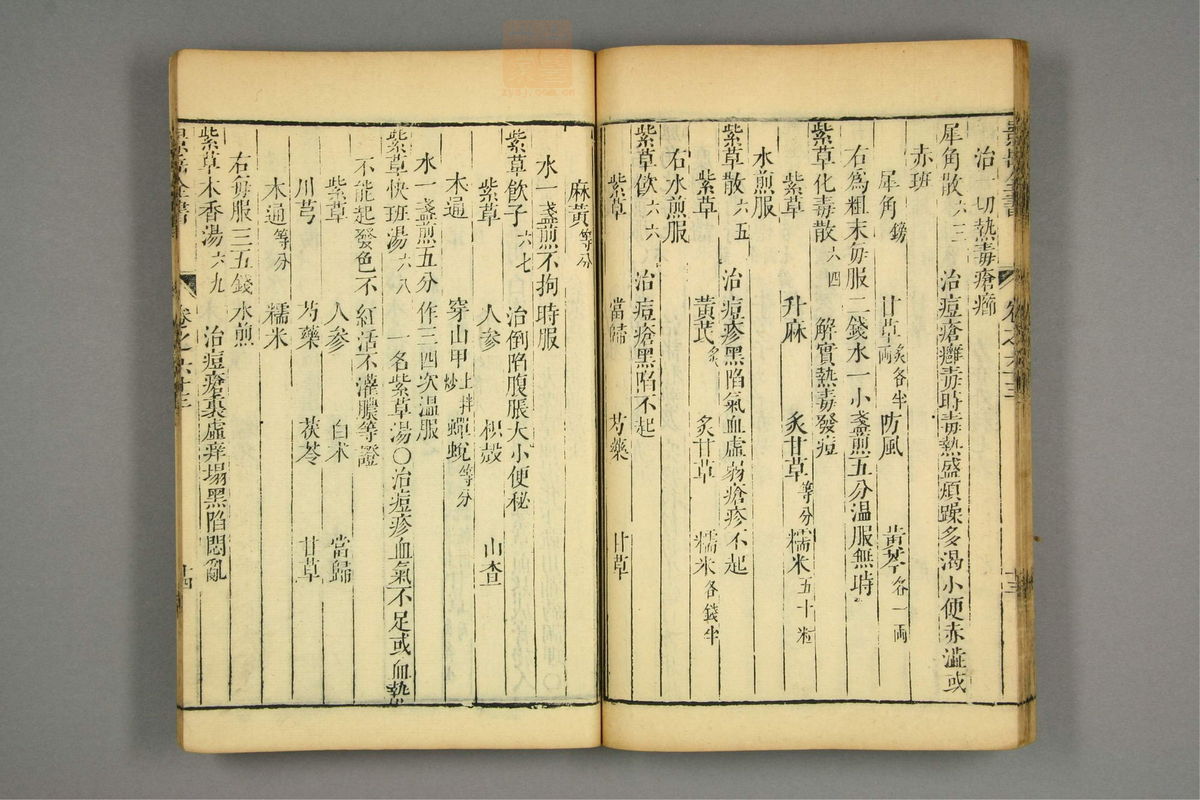 治一切熱毒瘡癤
犀角散六三 治痘瘡癰毒時毒熱盛煩躁多渴小便赤澁或
赤班
犀角鎊 甘草炙各半兩 防風 黃芩各一兩
右爲粗末每服二錢水一小盞煎五分溫服無時
紫草化毒散六四 解實熱毒發痘
紫草 升麻 炙甘草等分 糯米五十粒
水煎服
紫草散六五 治痘疹黑陷氣血虛弱瘡疹不起
紫草 黃茋炙 炙甘草 糯米各錢半
右水煎服
紫草飲六六 治痘瘡黑陷不起
紫草 當歸 芍藥 甘草
麻黃等分
水一盞煎不拘時服
紫草飲子六七 治倒陷腹脹大小便秘
紫草 人參 枳殼 山查
木通 穿山甲土拌炒 蟬蛻等分
水一盞煎五分作三四次溫服
紫草快班湯六八 一名紫草湯○治痘疹血氣不足或血熱
不能起發色不紅活不灌膿等證
紫草 人參 白朮 當歸
川芎 芍藥 茯苓 甘草
木通等分 糯米
右每服三五錢水煎
紫草木香湯六九 治痘瘡裏虛痒塌黑陷悶亂
景岳全書 卷之六十三 十四